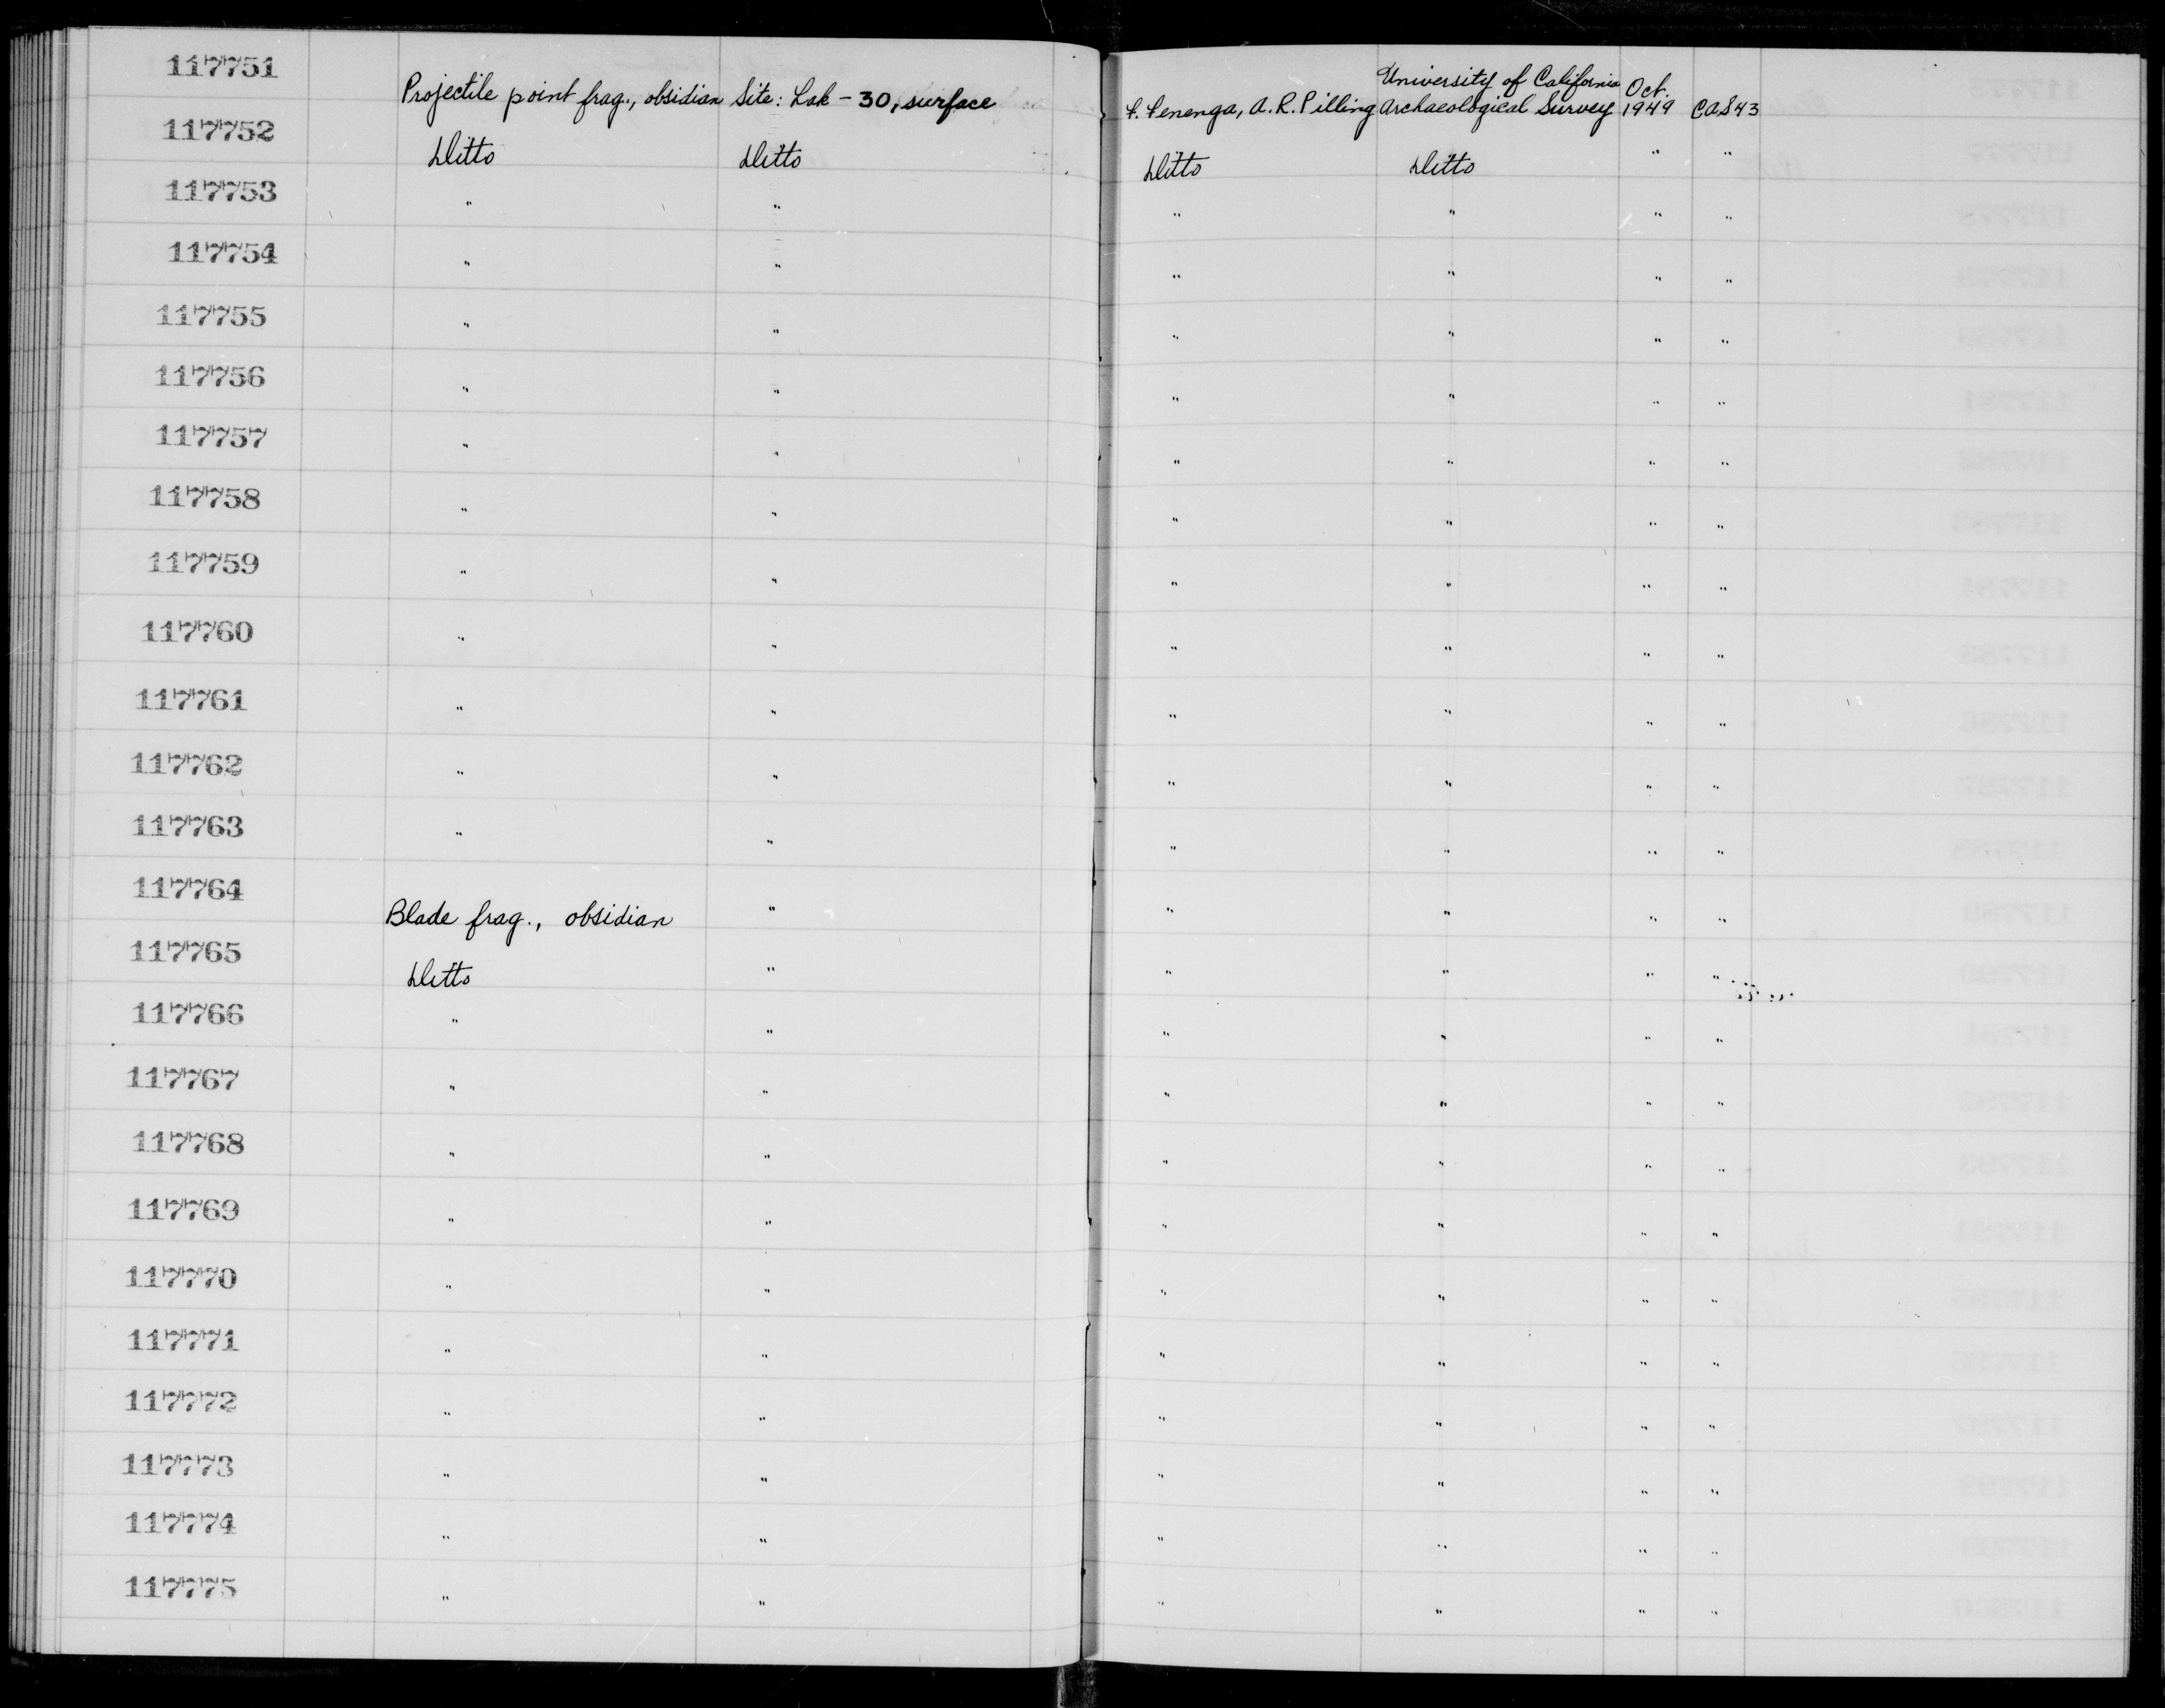 117751 Projectile point frag., obsidian Site: Lak - 30, surface F. Fenenga, A. R. Pilling University of California Archaeological Survey Oct. 1949 CAS 43
117752 Ditto Ditto Ditto Ditto " "
117753 " " " " " "
117754 " " " " " "
117755 " " " " " "
117756 " " " " " "
117757 " " " " " "
117758 " " " " " "
117759 " " " " " "
117760 " " " " " "
117761 " " " " " "
117762 " " " " " "
117763 " " " " " "
117764 Blade frag., obsidian " " " " "
117765 Ditto " " " " "
117766 " " " " " "
117767 " " " " " "
117768 " " " " " "
117769 " " " " " "
117770 " " " " " "
117771 " " " " " "
117772 " " " " " "
117773 " " " " " "
117774 " " " " " "
117775 " " " " " "